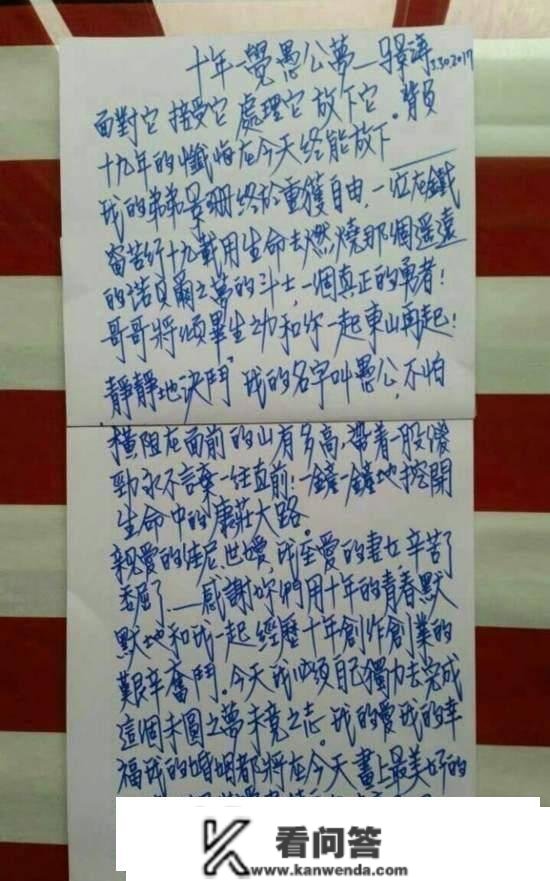 十年一覺愚公夢—馬景濤 3.30.2017
面對它 接受它 處理它 放下它。背負
十九年的懺悔在今天終能放下
我的弟弟景珊終於重獲自由,一位在鐵
窗苦行十九載用生命去燃燒那個遥遠
的諾貝爾之夢的斗士,一個真正的勇者!
哥哥將傾畢生之力和你一起東山再起!
靜靜地決鬥"我的名字叫愚公,不怕
橫阻在面前的山有多高,帶着一股傻
勁永不言棄一往直前!一鏟一鏟地挖開
生命中的康莊大路。
親愛的佳尼、世嫒,我至愛的妻女,辛苦了
委屈了——感謝妳們用十年的青春默
默地和我一起經歷十年創作創業的
艱辛奮鬥。今天我必須自己獨力去完成
這個未圓之夢未竟之志。我的愛我的幸
福我的婚姻都將在今天畫上最美好的
K 看问答
www.kanwenda.com